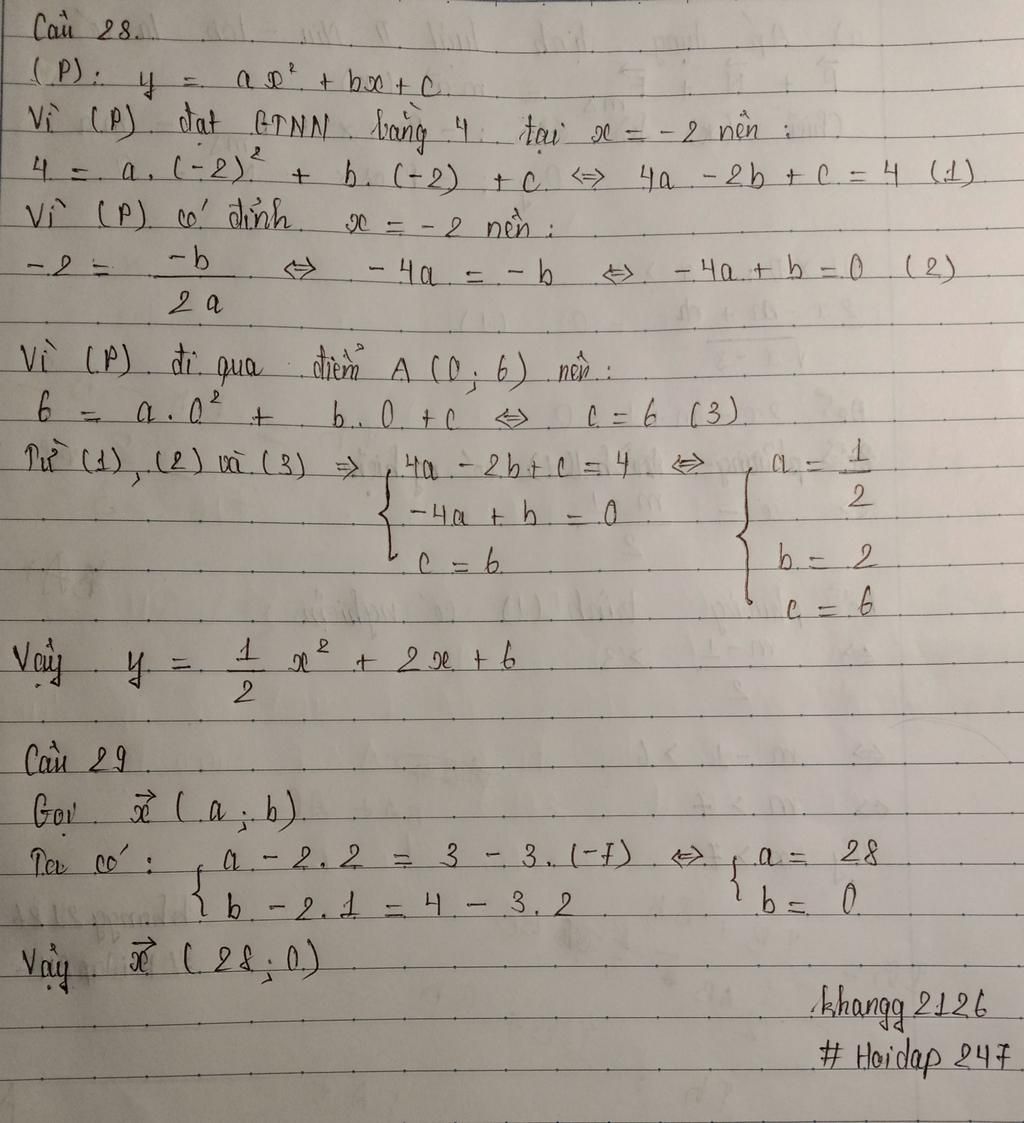 Câu 28.
(P): y = ax² + bx + c
Vì (P) đạt GTNN bằng 4 tại x = -2 nên:
4 = a.(-2)² + b.(-2) + c ⇔ 4a - 2b + c = 4 (1)
Vì (P) có đỉnh x = -2 nên:
-2 = -b / 2a ⇔ -4a = -b ⇔ -4a + b = 0 (2)
Vì (P) đi qua điểm A (0; 6) nên:
6 = a.0² + b.0 + c ⇔ c = 6 (3)
Từ (1), (2) và (3) ⇒ { 4a - 2b + c = 4 ⇔ { a = 1/2
-4a + b = 0
b = 2
c = 6
c = 6
Vậy y = 1/2 x² + 2x + 6
Câu 29
Gọi x⃗ (a; b)
Ta có: { a - 2.2 = 3 - 3.(-7) ⇔ { a = 28
b - 2.1 = 4 - 3.2 b = 0
Vậy x⃗ (28; 0)
khangg2126
# Hoidap247